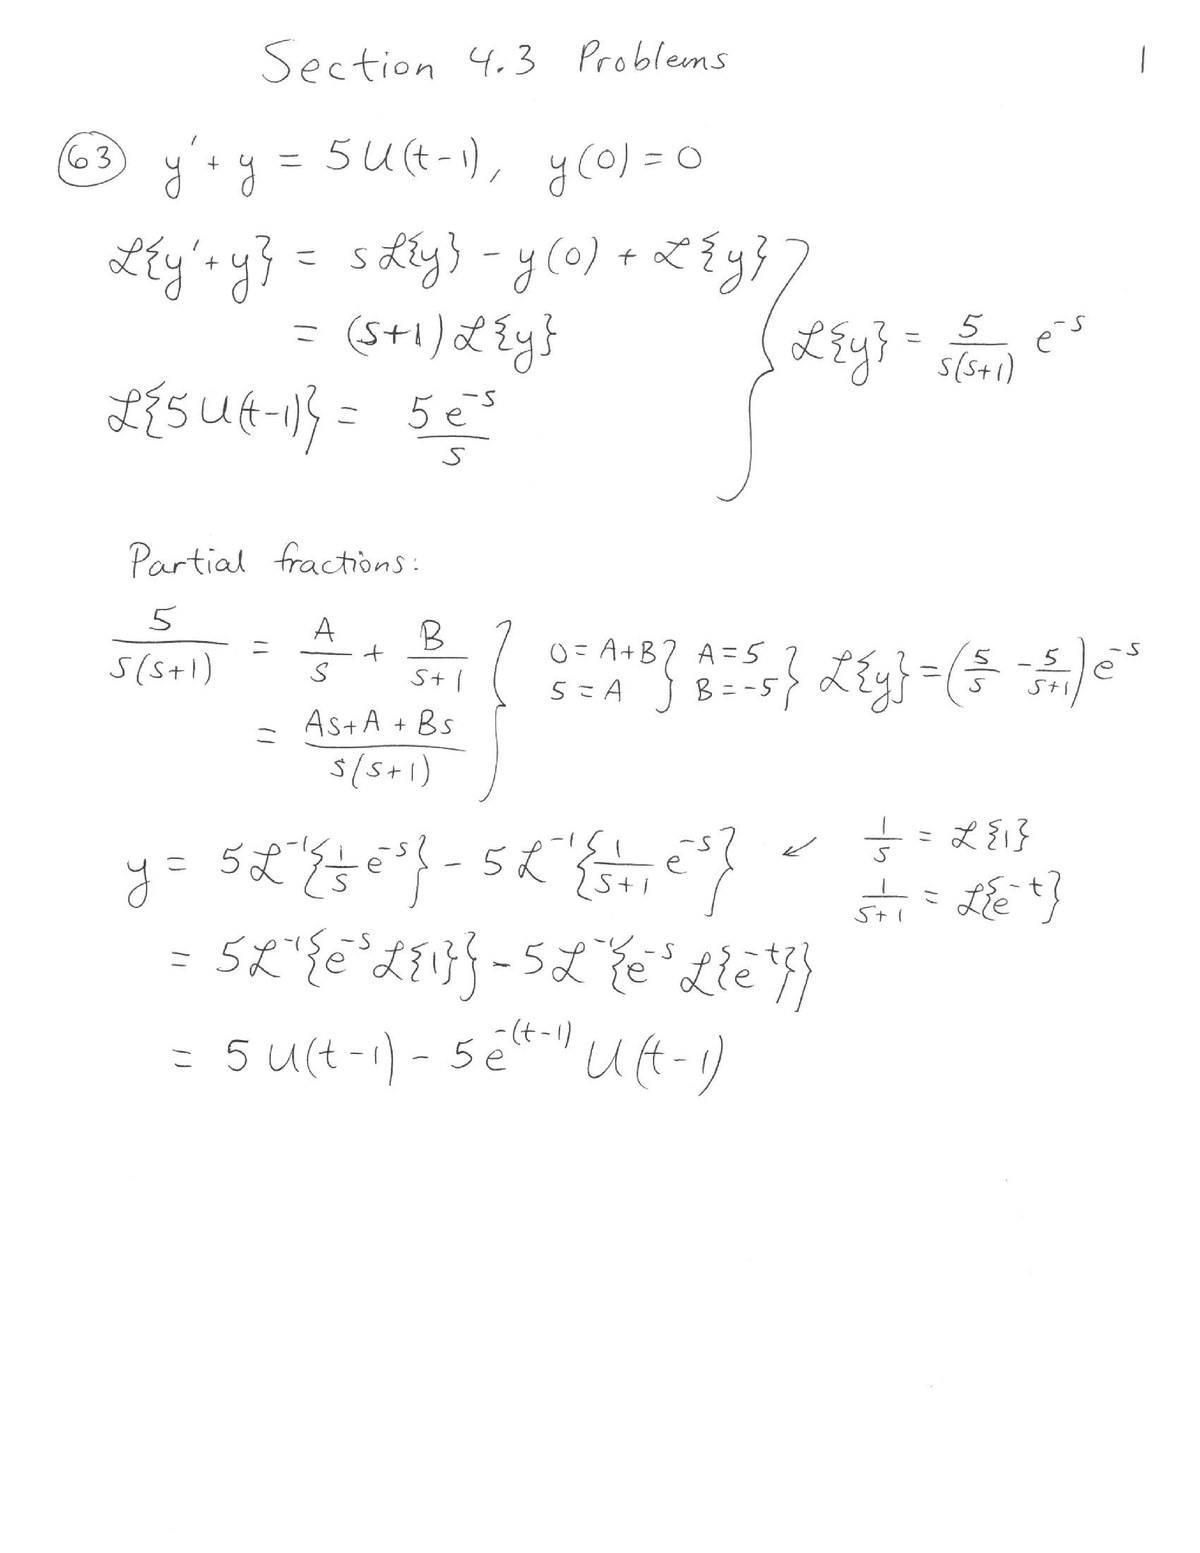 Section 4.3 Problems 1
63 y' + y = 5U(t-1), y(0) = 0
ℒ{y'+y} = sℒ{y} - y(0) + ℒ{y}
= (s+1)ℒ{y} } ℒ{y} = 5/(s(s+1)) e^{-s}
ℒ{5U(t-1)} = 5e^{-s}/s
Partial fractions:
5/(s(s+1)) = A/s + B/(s+1) } 0 = A+B, 5 = A } A = 5, B = -5 } ℒ{y} = (5/s - 5/(s+1)) e^{-s}
= (As+A+Bs)/(s(s+1))
y = 5ℒ^{-1}{1/s e^{-s}} - 5ℒ^{-1}{1/(s+1) e^{-s}} ↙ 1/s = ℒ{1}
1/(s+1) = ℒ{e^{-t}}
= 5ℒ^{-1}{e^{-s}ℒ{1}} - 5ℒ^{-1}{e^{-s}ℒ{e^{-t}}}
= 5U(t-1) - 5e^{-(t-1)}U(t-1)